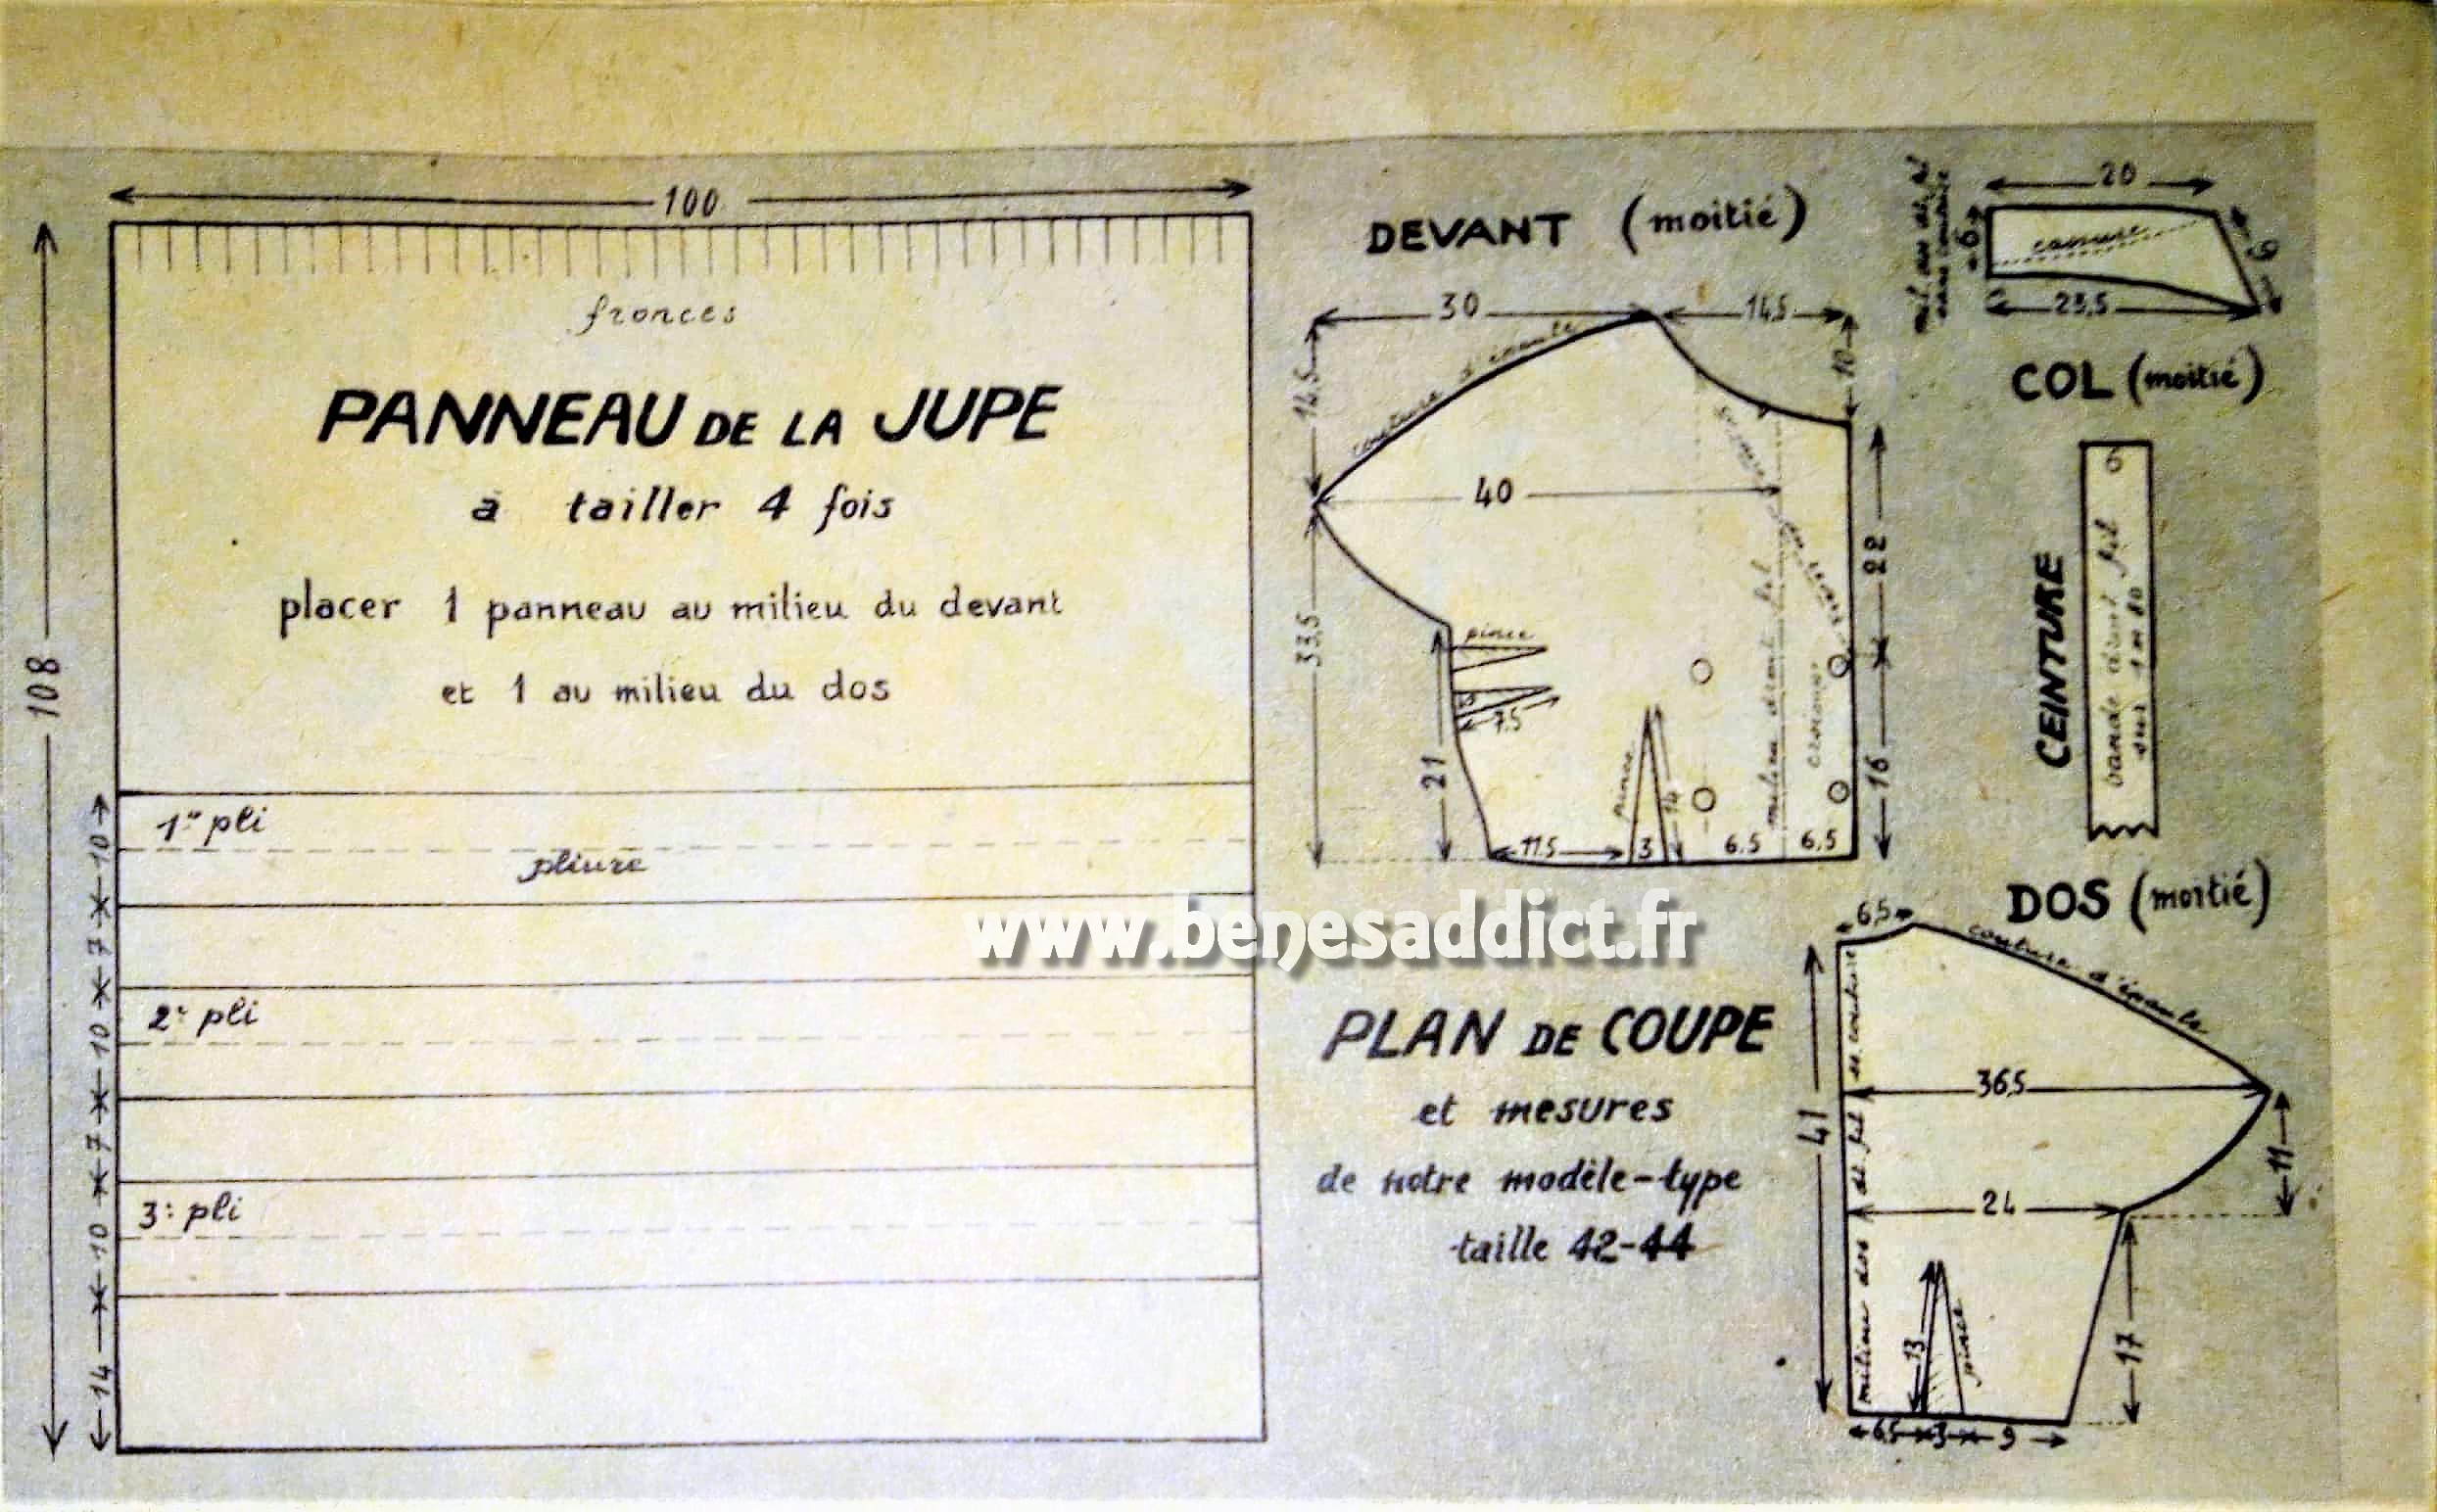 100
108
fronces
PANNEAU DE LA JUPE
à tailler 4 fois
placer 1 panneau au milieu du devant
et 1 au milieu du dos
1er pli
pliure
2e pli
3e pli
10
7
10
7
10
14
DEVANT (moitié)
30
14,5
14,5
10
couture d'épaule
40
22
33,5
pince
7,5
21
pince
14
milieu droit fil
croisure
16
11,5
3
6.5
6,5
20
6
cassure
9
23,5
COL (moitié)
CEINTURE
6
bande droit fil
sur 1 m 80
www.benesaddict.fr
PLAN DE COUPE
et mesures
de notre modèle-type
taille 42-44
DOS (moitié)
6,5
couture d'épaule
41
36,5
11
24
milieu dos dr. fil
13
pince
17
6,5
3
9